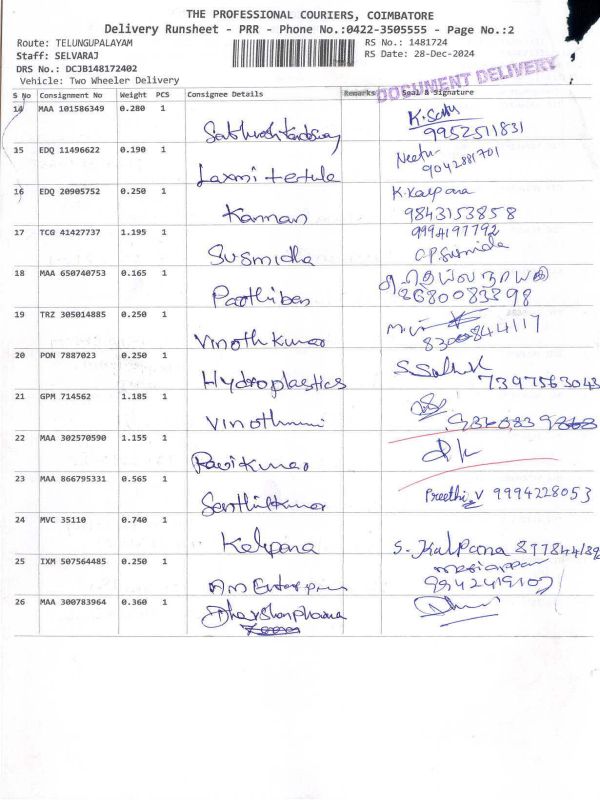 THE PROFESSIONAL COURIERS, COIMBATORE
Delivery Runsheet - PRR - Phone No.:0422-3505555 - Page No.:2
Route: TELUNGUPALAYAM RS No.: 1481724
Staff: SELVARAJ RS Date: 28-Dec-2024
DRS No.: DCJB148172402
Vehicle: Two Wheeler Delivery
DOCUMENT DELIVERY
S No Consignment No Weight PCS Consignee Details Remarks Seal & Signature
14 MAA 101586349 0.280 1
9952511831
15 EDQ 11496622 0.190 1 Neetu
Laxmi 9042881701
16 EDQ 20905752 0.250 1 K.Kalpana
Kannan 9843153858
17 TCG 41427737 1.195 1 9994197792
Susmidha C.P.Susmida
18 MAA 650740753 0.165 1
Parthiban
19 TRZ 305014885 0.250 1
Vinoth Kumar
20 PON 7887023 0.250 1
Hydroplastics 7397563043
21 GPM 714562 1.185 1
22 MAA 302570590 1.155 1
Ravikumar
23 MAA 866795331 0.565 1 Preethi.V 9994228053
Senthilkumar
24 MVC 35110 0.740 1
Kalpana S. Kalpana
25 IXM 507564485 0.250 1
26 MAA 300783964 0.360 1
Dharshanpharma